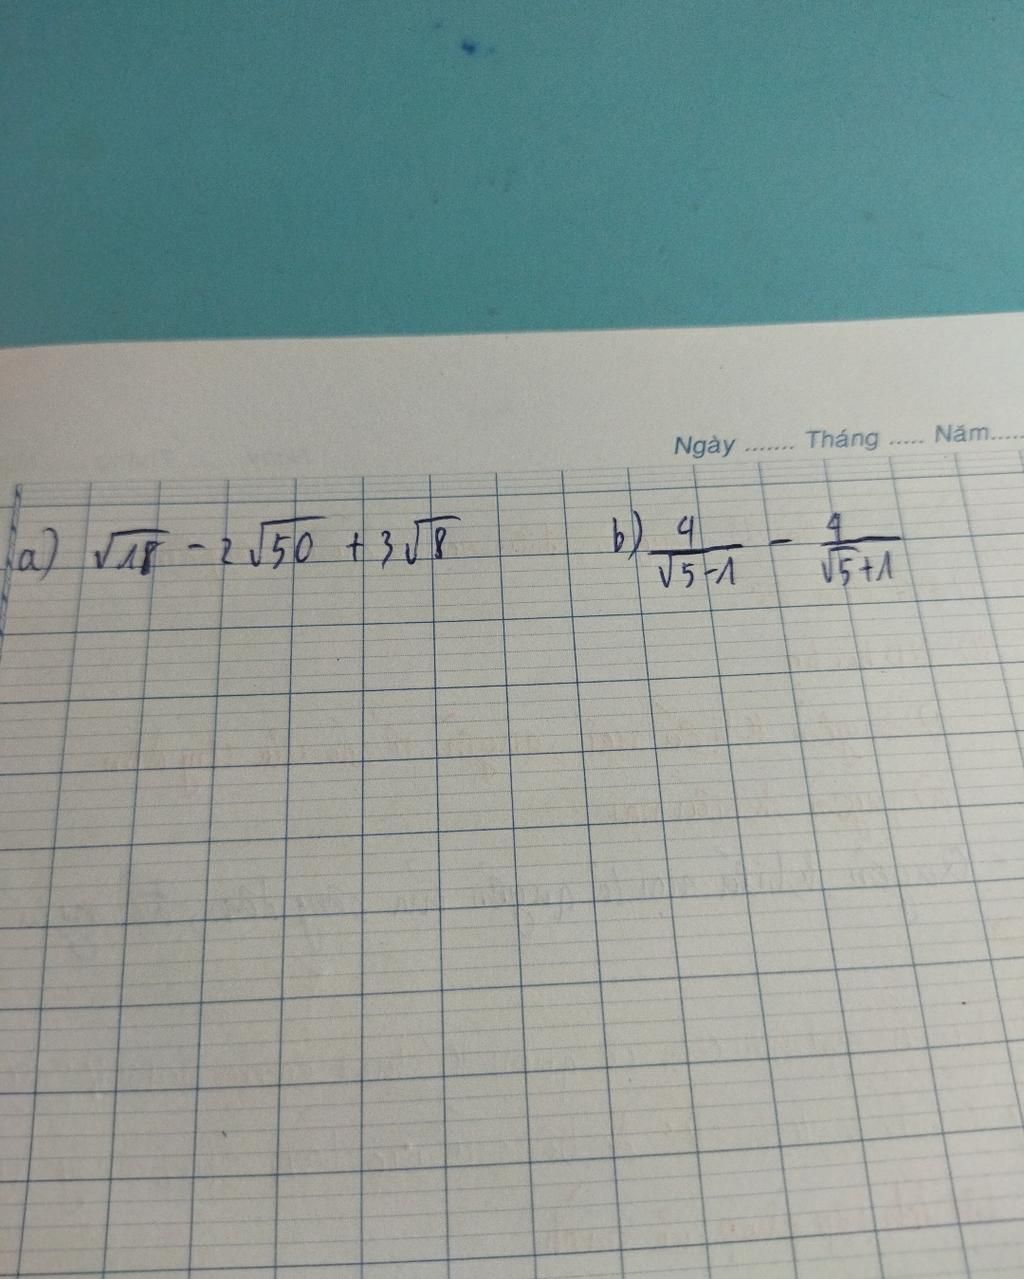 Ngày ....... Tháng ..... Năm.....
a) √18 - 2√50 + 3√8 b) 4/(√5-1) - 4/(√5+1)